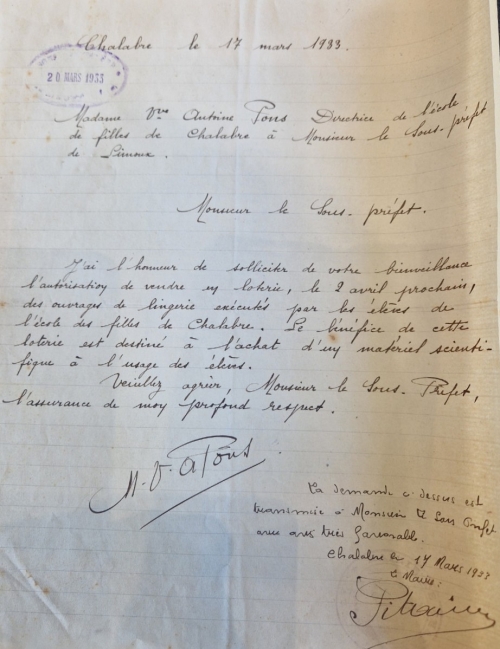 Chalabre le 17 mars 1933.
20 MARS 1933
Madame Vve Antoine Pons Directrice de l'école
de filles de Chalabre à Monsieur le Sous-préfet
de Limoux.
Monsieur le Sous-préfet.
J'ai l'honneur de solliciter de votre bienveillance
l'autorisation de vendre en loterie, le 2 avril prochain,
des ouvrages de lingerie exécutés par les élèves de
l'école des filles de Chalabre. Le bénéfice de cette
loterie est destiné à l'achat d'un matériel scienti-
fique à l'usage des élèves.
Veuillez agréer, Monsieur le Sous-Préfet,
l'assurance de mon profond respect.
M. V. A Pons
La demande ci dessus est
transmise à Monsieur le Sous Préfet
avec avis très favorable.
Chalabre le 17 Mars 1933
Le Maire: